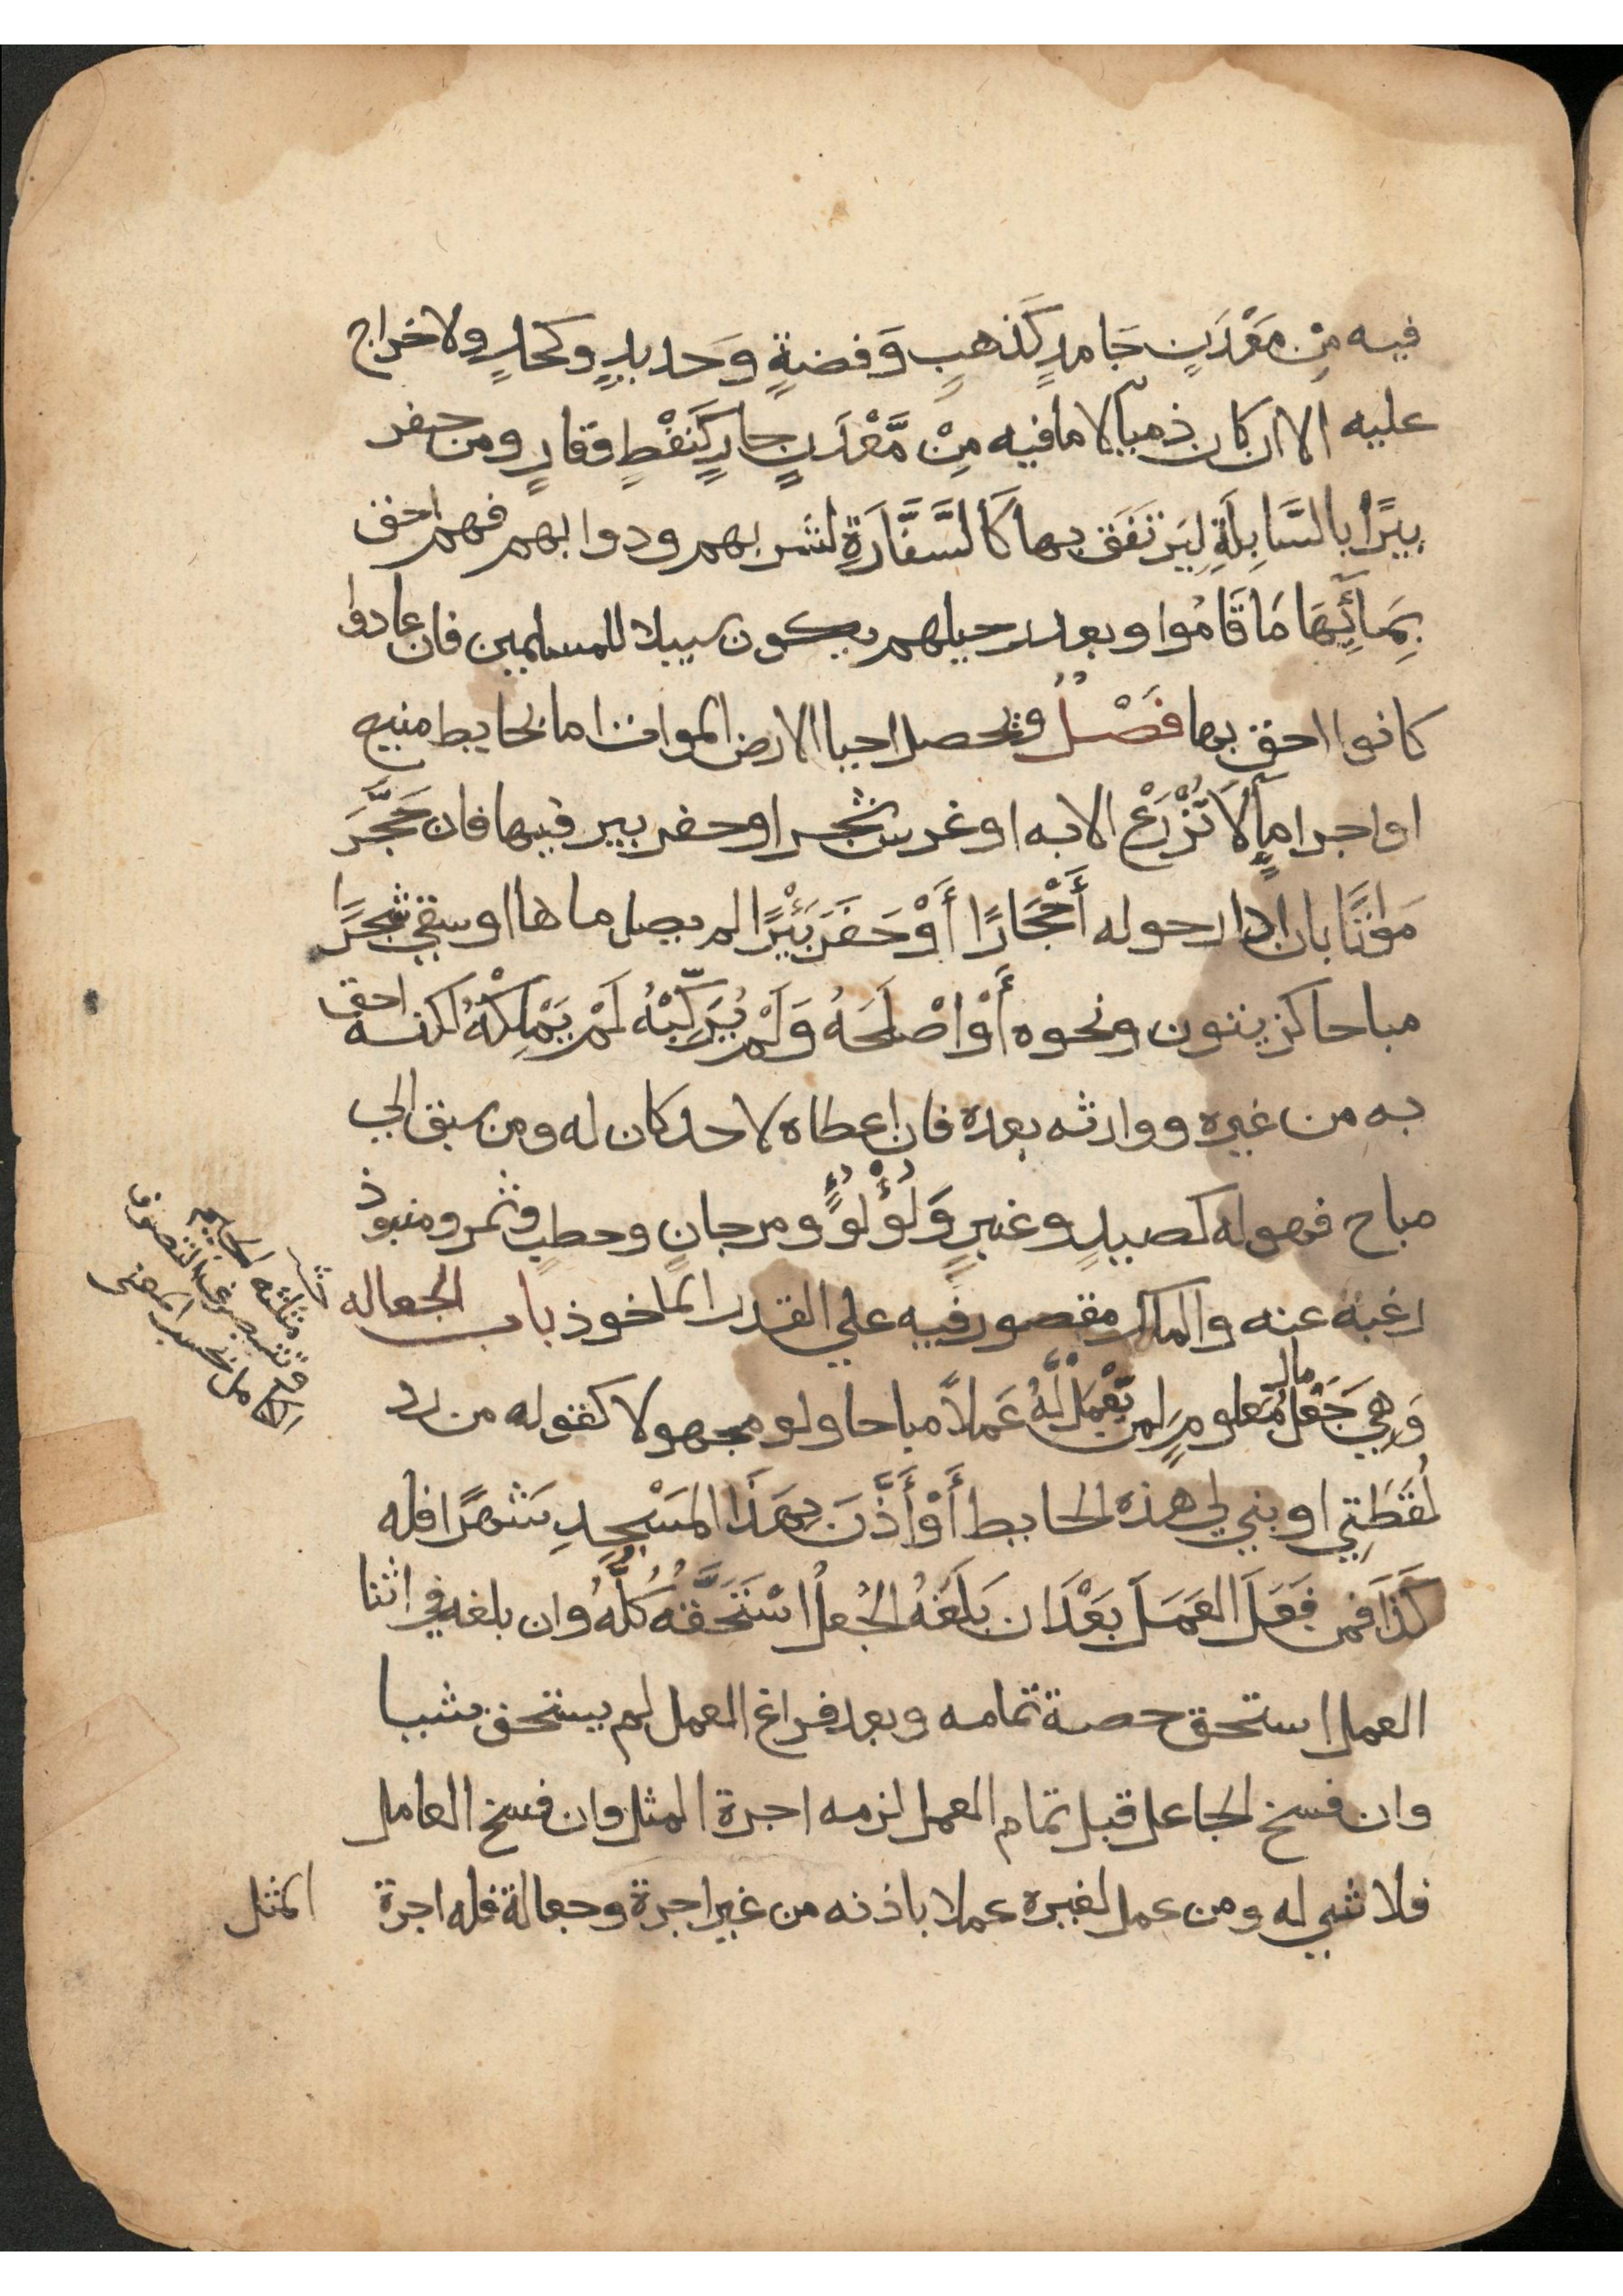 فيه مِنْ مَعْدَنٍ جَامدٍ كَذهبٍ وَفضةٍ وَحديدٍ وكحلٍ ولاخراج
عليه الا ان كان ذميآ لا مافيه مِنْ مَّعْدَنٍ جارٍ كَنَفْطٍ وقارٍ ومن حفر
بيرًا بالسَّابِلَةِ لِيَرْتَفَقَ بها كَالسَّفَّارَةِ لشربهم ودوابهم فهم احق
بِمَآئِهَا مَا قَامُوا وبعد رحيلهم يكون سبيلا للمسلمين فان عادوا
كانوا احق بها فَصْلٌ وتحصل احيا الارض الموات اما بحايط منيع
او اجرا مآٍ لَا تُزْرَعْ الا به او غرس شجر او حفر بير فيها فان حَجَّرَ
مَوَاتًا بان ادار حوله أَحْجَارًا أَوْ حَفَرَ بَئْرًا لم يصل ماها او سقي شجرًا
مباحا كزيتون ونحوه أَوْ اصْلَحَهُ وَلَمْ يُرَكِّبْهُ لَمْ يَمْلِكْهُ لكنه احق
به من غيره ووارثه بعده فان اعطاه لاحد كان له ومن سبق الي
مباح فهو له كصيدٍ وعنبرٍ وَلُؤْلُؤٍ ومرجانٍ وحطبٍ وثمر ومنبوذ
رغبة عنه والملك مقصور فيه علي القدر الماخوذ باب الجعاله
وَهِيَ جَعْلُ مال مَعلومٍ لمن يَعْمَلُ لَّهُ عَملاً مباحا ولو مجهولا كقوله من رد
لُقَطَتِي او بني لي هذه الحايط أَوْ أَذَّنَ بِهَذَا المَسْجِدِ شَهْرًا فله
كَذَا فمن فَعَلَ العَمَلَ بَعْدَ ان بَلَغَهُ الجُعلُ اسْتَحَقَّهُ كُلَّهُ وان بلغه في اثنا
العمل استحق حصة تمامه وبعد فراغ العمل لم يستحق شيا
وان فسخ الجاعل قبل تمام العمل لزمه اجرة المثل وان فسخ العامل
فلا شي له ومن عمل لغيره عملا باذنه من غير اجرة وجعالة فله اجرة
المثل